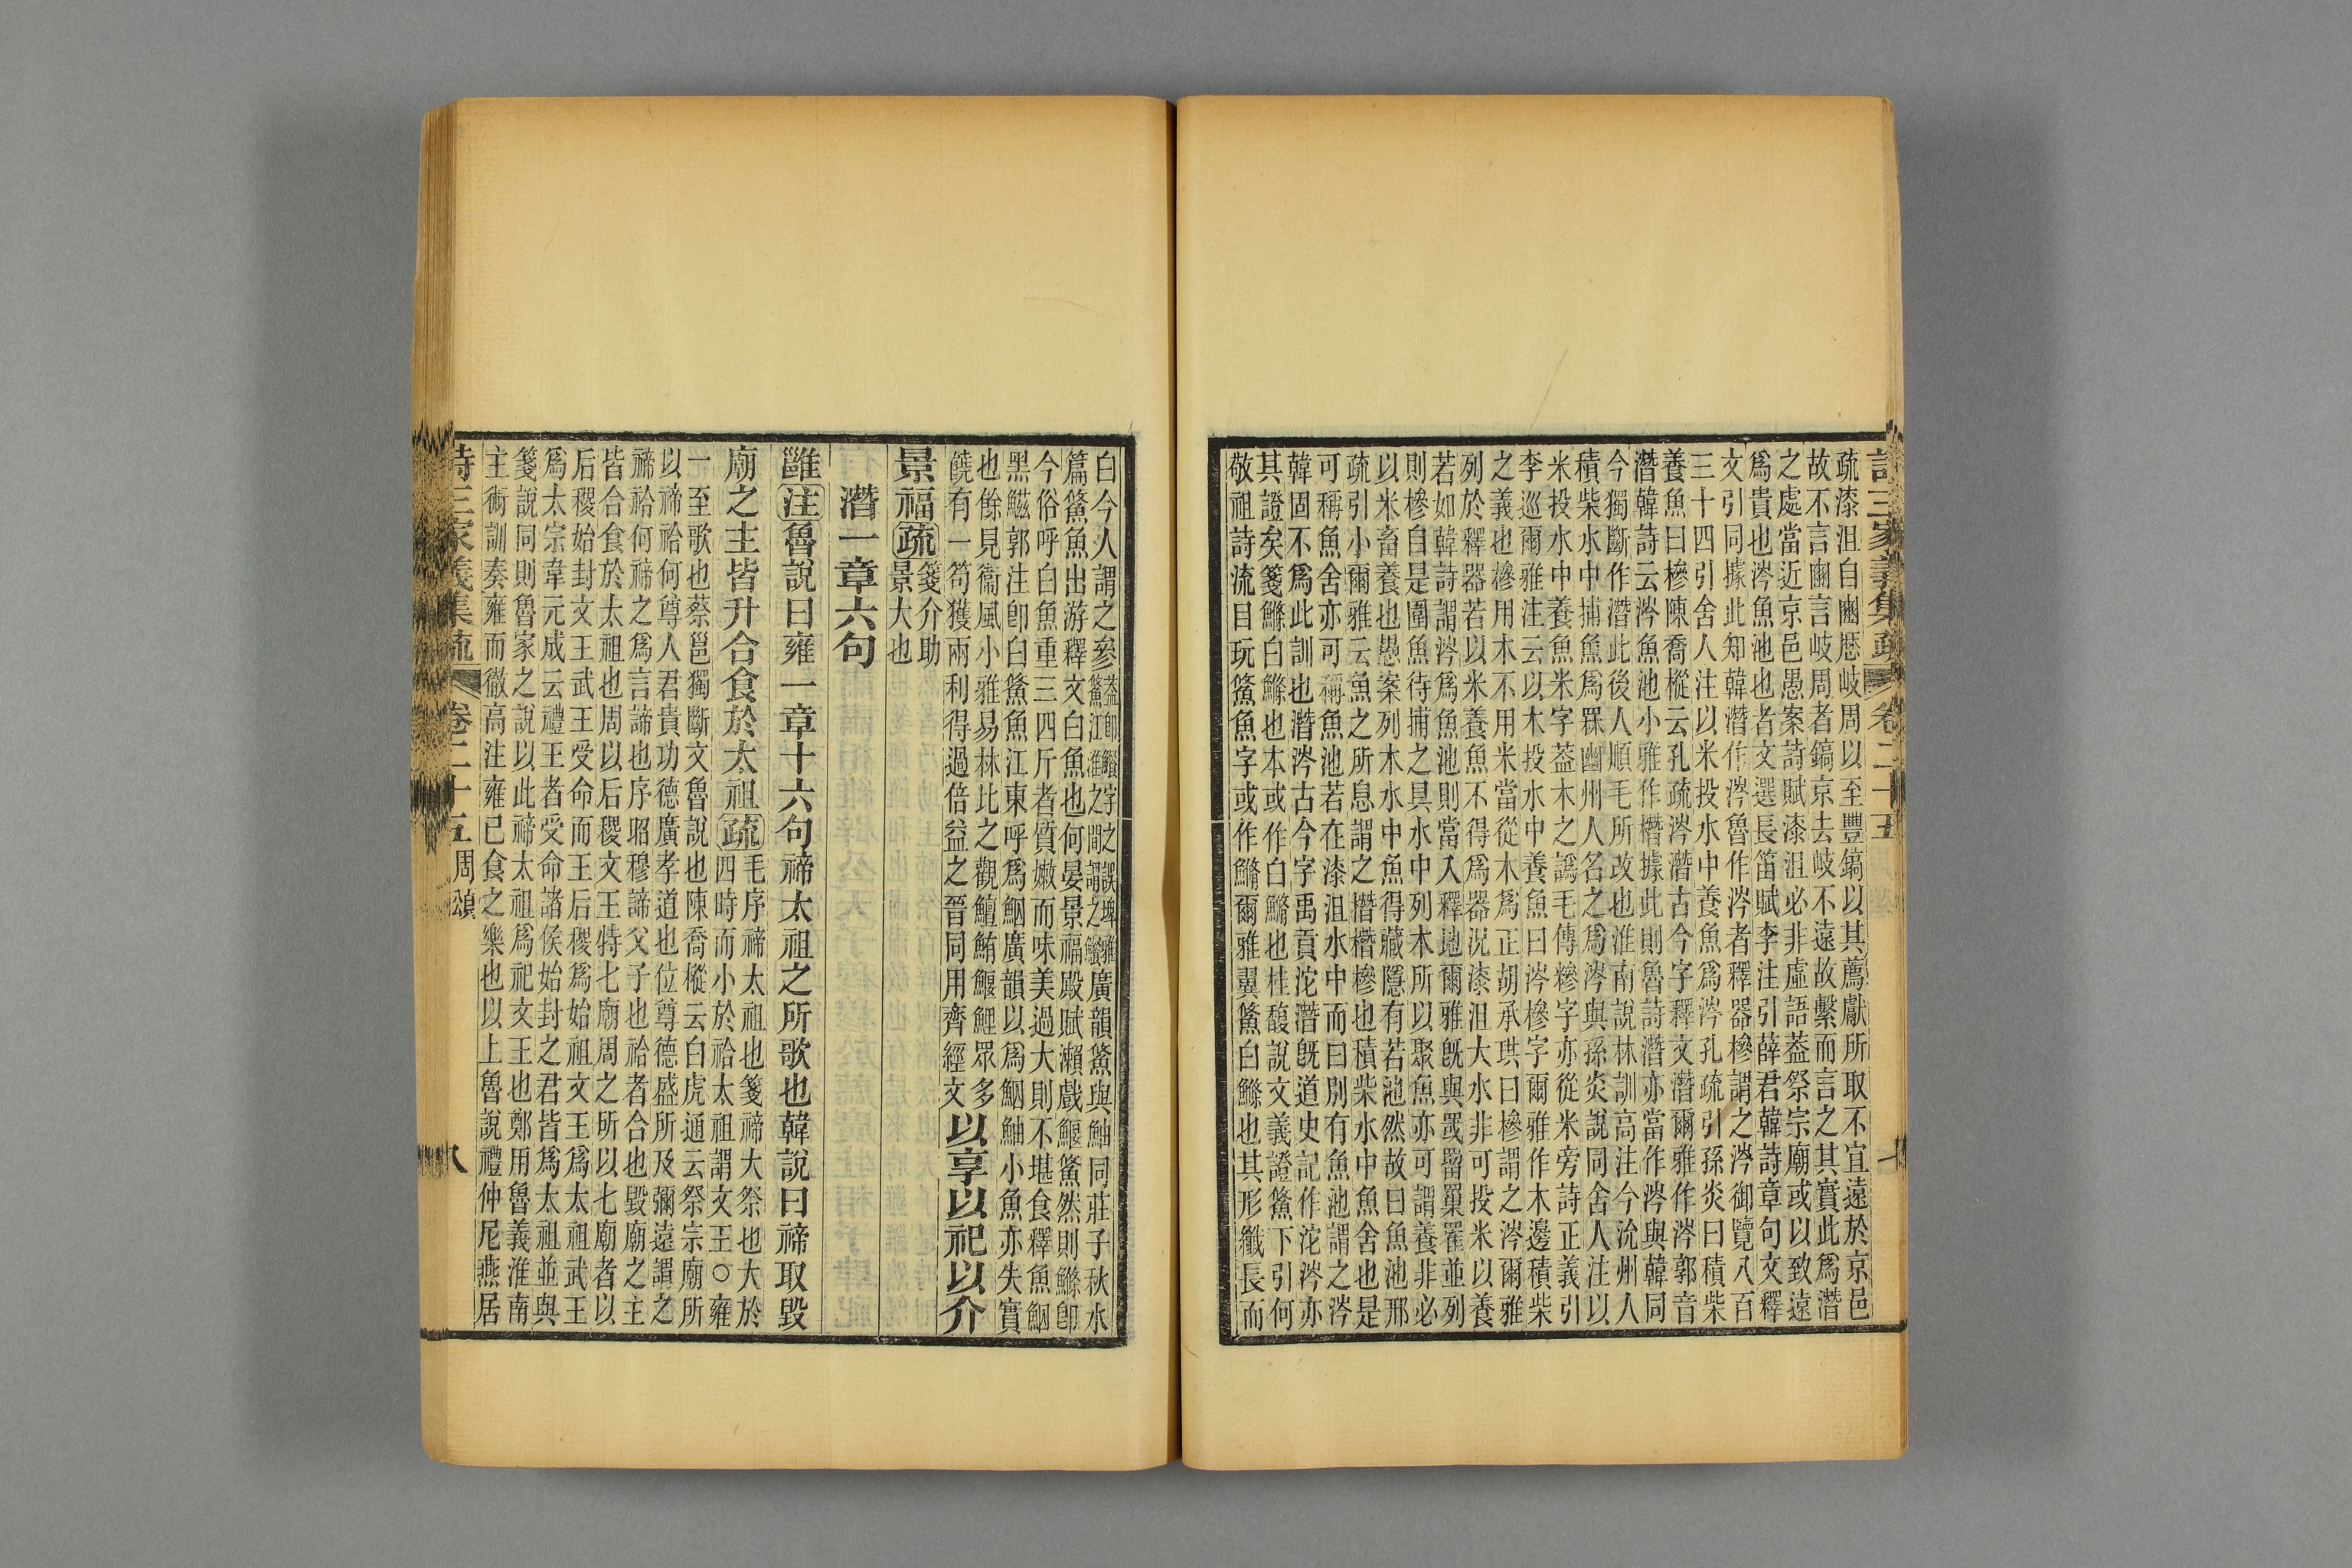 詩三家義集疏 卷二十五
疏漆沮自豳歷岐周以至豐鎬以其薦獻所取不宜遠於京邑
故不言豳言岐周者鎬京去岐不遠故繫而言之其實此爲潛
之處當近京邑愚案詩賦漆沮必非虛語葢祭宗廟或以致遠
爲貴也涔魚池也者文選長笛賦李注引薛君韓詩章句文釋
文引同據此知韓潛作涔魯作涔者釋器槮謂之涔御覽八百
三十四引舍人注以米投水中養魚爲涔孔疏引孫炎曰積柴
養魚曰槮陳喬樅云孔疏涔潛古今字釋文潛爾雅作涔郭音
潛韓詩云涔魚池小雅作橬據此則魯詩潛亦當作涔與韓同
今獨斷作潛此後人順毛所改也淮南說林訓高注今沇州人
積柴水中捕魚爲罧幽州人名之爲涔與孫炎說同舍人注以
米投水中養魚米字葢木之譌毛傳糝字亦從米旁詩正義引
李巡爾雅注云以木投水中養魚曰涔槮字爾雅作木邊積柴
之義也槮用木不用米當從木爲正胡承珙曰槮謂之涔爾雅
列於釋器若以米養魚不得爲器況漆沮大水非可投米以養
若如韓詩謂涔爲魚池則當入釋地爾雅旣與罭罶罺罿並列
則槮自是圍魚待捕之具水中列木所以聚魚亦可謂養非必
以米畜養也愚案列木水中魚得藏隱有若池然故曰魚池邢
疏引小爾雅云魚之所息謂之橬橬槮也積柴水中魚舍也是
可稱魚舍亦可稱魚池若在漆沮水中而曰別有魚池謂之涔
韓固不爲此訓也潛涔古今字禹貢沱潛旣道史記作沱涔亦
其證矣箋鰷白鰷也本或作白鰷也桂馥說文義證鮝下引何
敬祖詩流目玩鯈魚字或作鰷爾雅翼鯈白鰷也其形纖長而
白今人謂之䱗葢卽䱗字之誤埤雅鯈江淮之間謂之䱗廣韻鯈與鮋同莊子秋水
篇鯈魚出游釋文白魚也何晏景福殿賦瀨戲鰋鯈然則鰷卽
今俗呼白魚重三四斤者質嫩而味美過大則不堪食釋魚鮂
黑鰦郭注卽白鯈魚江東呼爲鮂廣韻以爲鮂鮋小魚亦失實
也餘見衞風小雅易林比之觀鱣鮪鰋鯉眾多
饒有一笱獲兩利得過倍益之晉同用齊經文以享以祀以介
景福疏箋介助
景大也
潛一章六句
雝注魯說曰雍一章十六句禘太祖之所歌也韓說曰禘取毀
廟之主皆升合食於太祖疏毛序禘太祖也箋禘大祭也大於
四時而小於祫太祖謂文王○雍
一至歌也蔡邕獨斷文魯說也陳喬樅云白虎通云祭宗廟所
以禘祫何尊人君貴功德廣孝道也位尊德盛所及彌遠謂之
禘祫何禘之爲言諦也序昭穆諦父子也祫者合也毀廟之主
皆合食於太祖也周以后稷文王特七廟周之所以七廟者以
后稷始封文王武王受命而王后稷爲始祖文王爲太祖武王
爲太宗韋元成云禮王者受命諸侯始封之君皆爲太祖並與
箋說同則魯家之說以此禘太祖爲祀文王也鄭用魯義淮南
主術訓奏雍而徹高注雍已食之樂也以上魯說禮仲尼燕居
詩三家義集疏 卷二十五 周頌 八